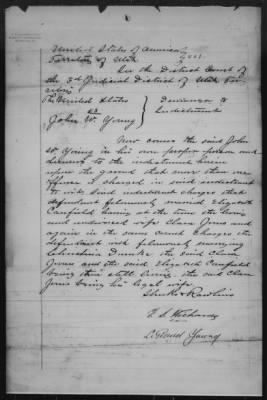 United States of America
Territory of Utah } ss.
In the District Court of
the 3rd Judicial District of Utah Ter-
ritory
The United States
vs
John W. Young
} Demurrer to
Indictment
Now comes the said John
W. Young in his own proper person and
demurs to the indictment herein
upon the ground that more than one
offence is charged in said indictment
to wit: Said indictment charges that
defendant feloniously married Elizabeth
Canfield having at the time then living
and undivorced wife Clara Jones and
again in the same count charges the
defendant with feloniously marrying
Christina Damke the said Clara
Jones and the said Elizabeth Canfield
being then still living, the said Clara
Jones being his legal wife.
Sheeks & Rawlins
F. S. Richards
LeGrand Young